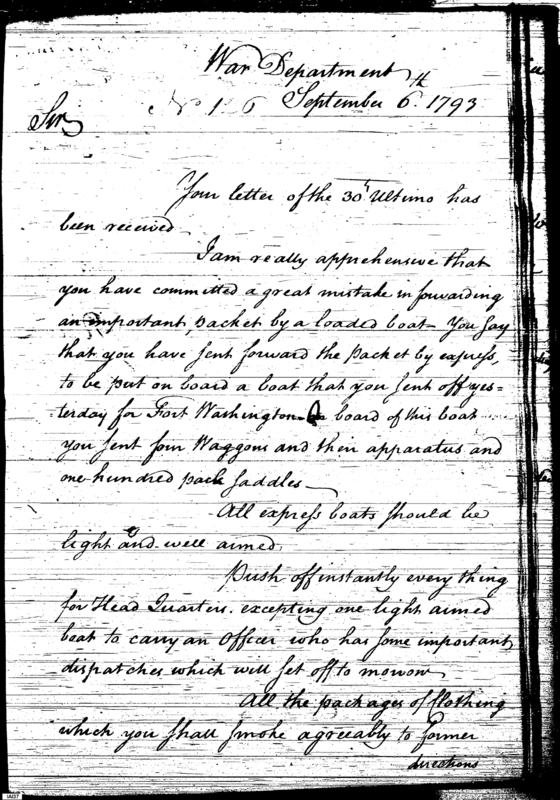 War Department
No 16 September 6th 1793
Sir
Your letter of the 30th Ultimo has
been received
I am really apprehensive that
you have committed a great mistake in forwarding
an important packet by a loaded boat— You say
that you have sent forward the packet by express,
to be put on board a boat that you sent off yes=
terday for Fort Washington— On board of this boat
you sent four Waggons and their apparatus and
one hundred pack saddles—
All express boats should be
light and well armed
Push off instantly every thing
for Head Quarters. excepting one light armed
boat to carry an Officer who has some important
dispatches which will set off to morrow
All the packages of clothing
which you shall smoke agreeably to former
directions